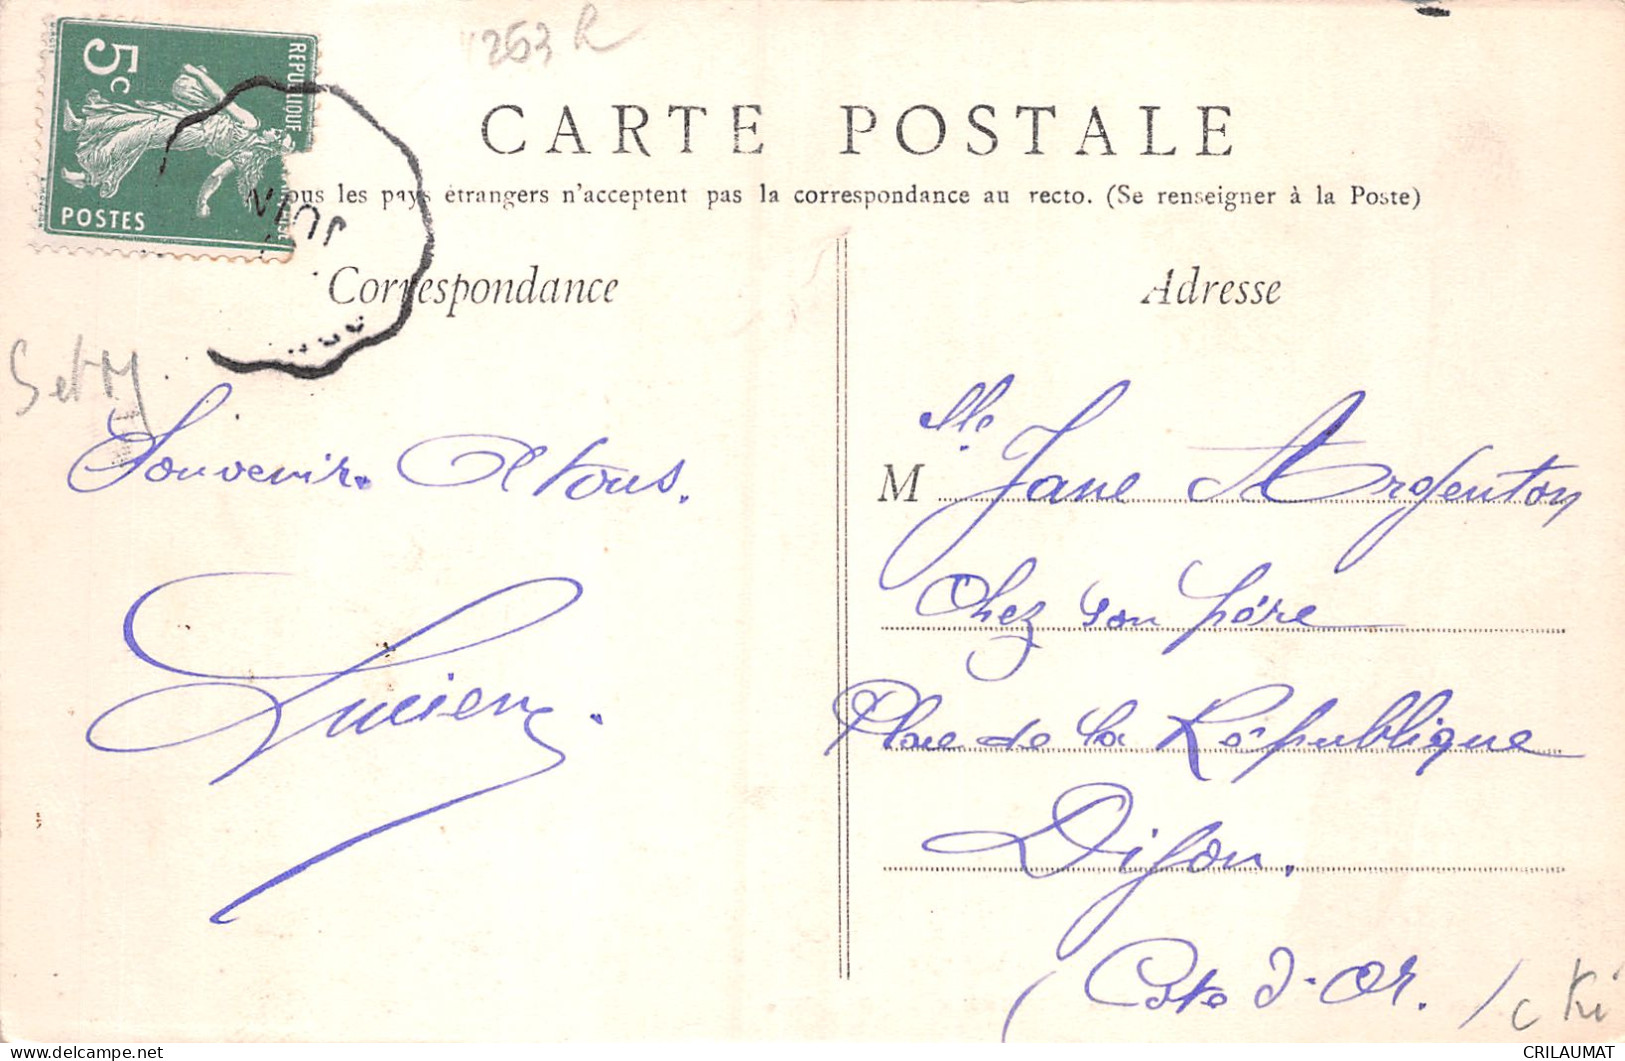 263 R
5c
REPUBLIQUE
POSTES
JUIN
CARTE POSTALE
Tous les pays étrangers n'acceptent pas la correspondance au recto. (Se renseigner à la Poste)
Correspondance
Adresse
S et M
Souvenir à tous.
Lucien.
M lle Jane Argenton
Chez son père
Place de la République
Dijon.
(Cote d'Or.
c Ki
CRILAUMAT